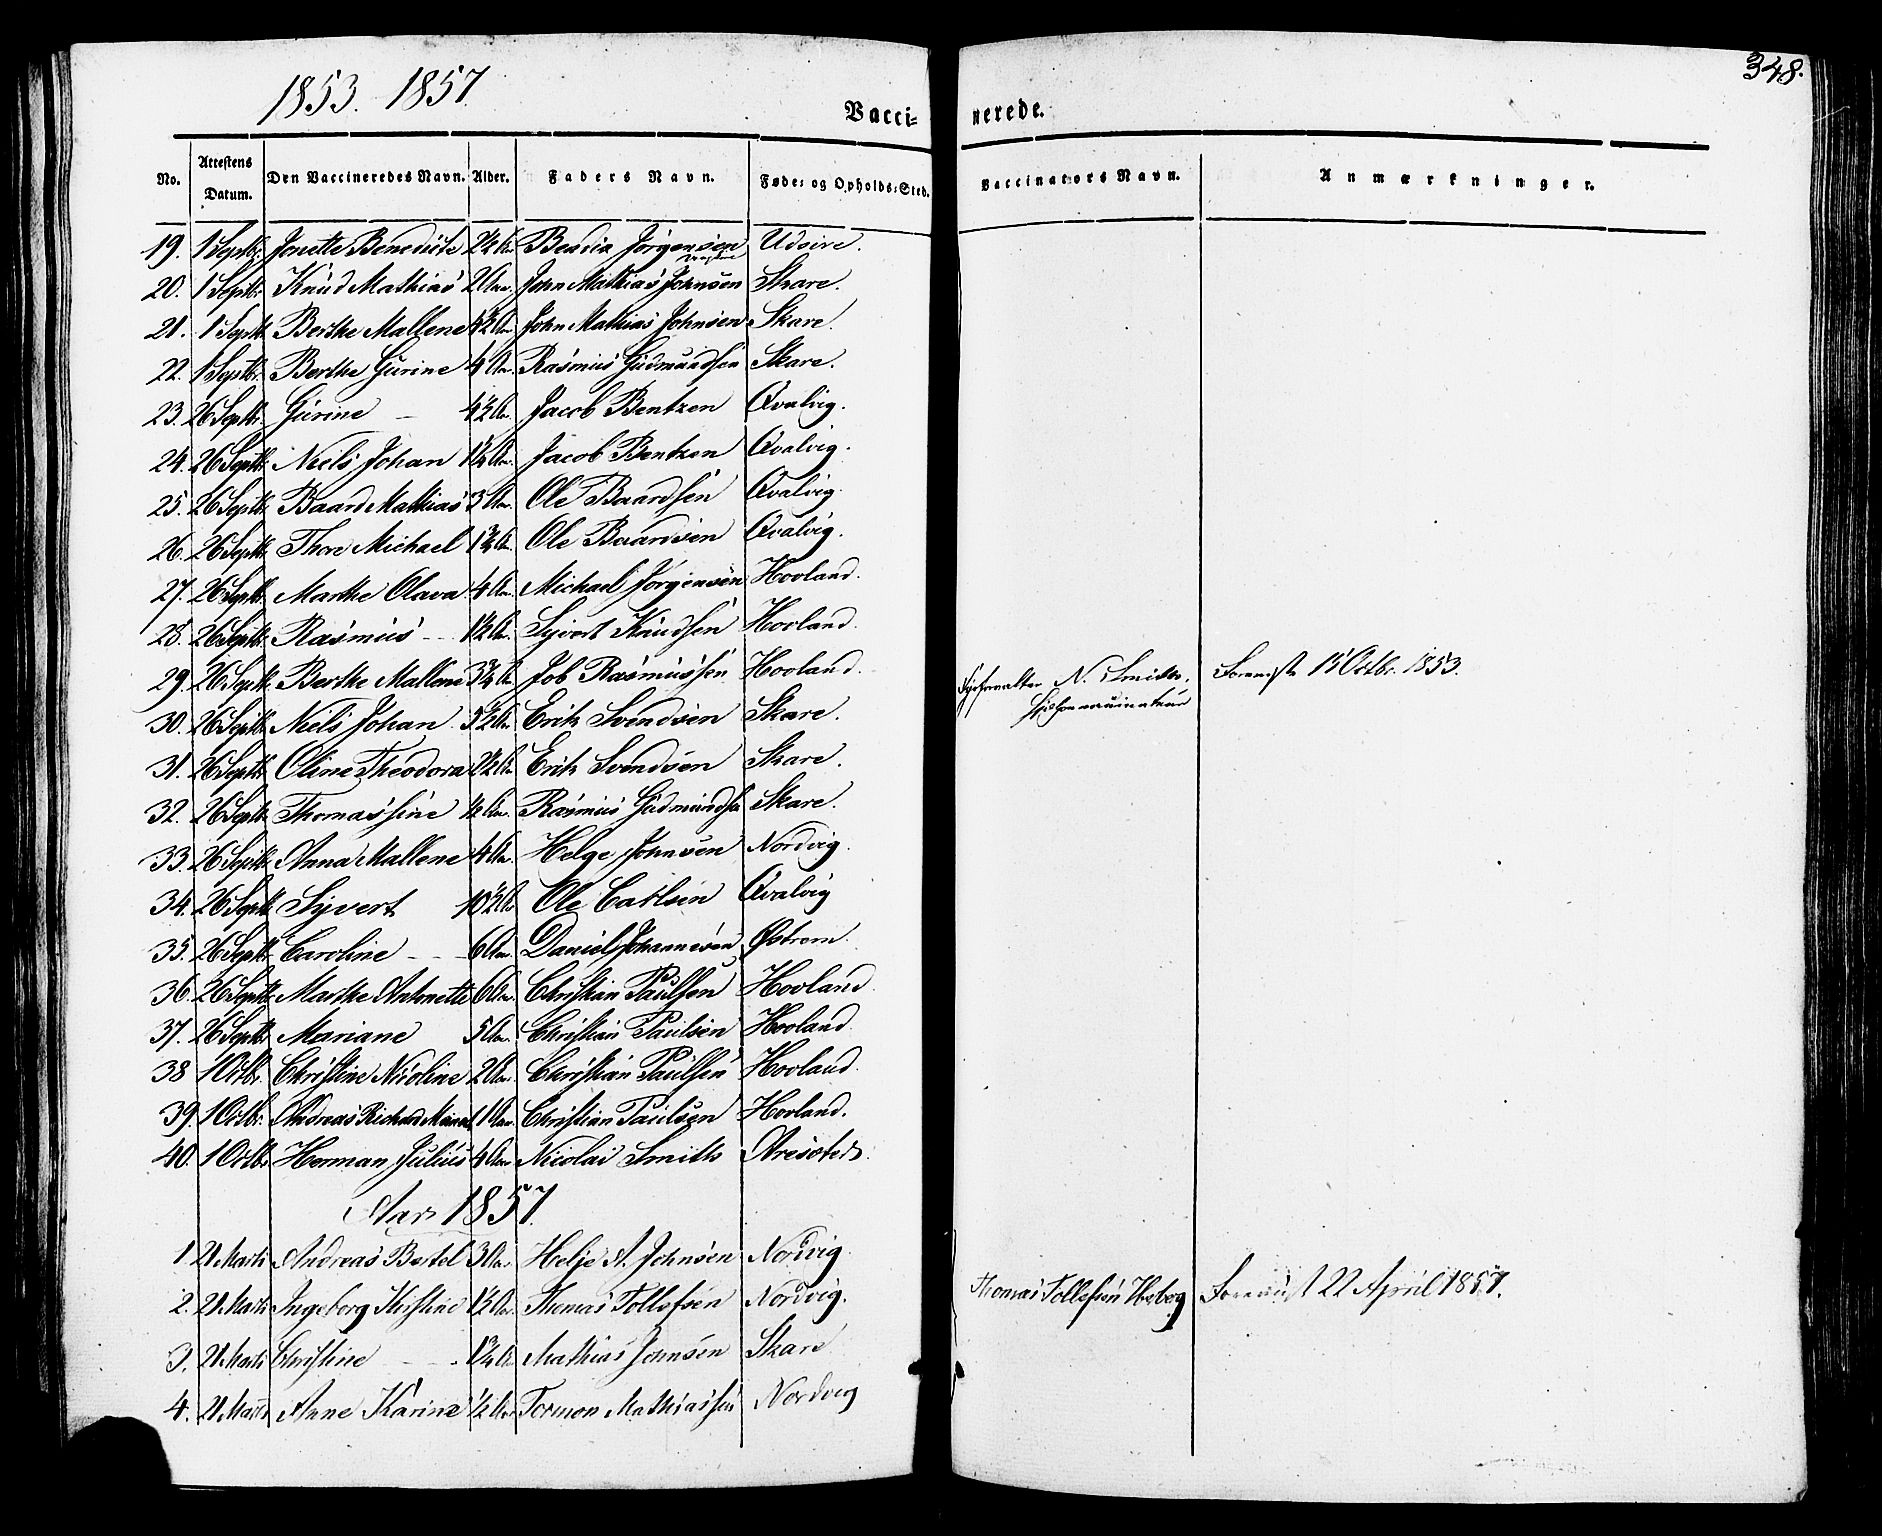 1853. 1857.
348.
Vacci= nerede.
No. Attestens Datum. Den Vaccineredes Navn. Alder. Faders Navn. Føde= og Opholds=Sted. Vaccinators Navn. Anmærkninger.
19. 1 Septbr. Jonette Benedicte 2½ Aar Jørgensen Udsire.
20. 1 Septbr. Knud Mathias 2 Aar. John Mathias Johnsen Skare.
21. 1 Septbr. Berthe Mallene 4½ Aar John Mathias Johnsen Skare.
22. 1 Septbr. Berthe Gurine 4 Aar. Rasmus Gudmundsen Skare.
23. 26 Septbr. Gurine – 4½ Aar. Jacob Bentzen Qvalvig.
24. 26 Septbr. Niels Johan 1½ Aar. Jacob Bentzen Qvalvig.
25. 26 Septbr. Baard Mathias 3 Aar. Ole Baardsen Qvalvig.
26. 26 Septbr. Thore Michael 1¾ A. Ole Baardsen Qvalvig.
27. 26 Septbr. Marthe Olava 4 Aar. Michael Jørgensen Hovland.
28. 26 Septbr. Rasmus – – 1½ Aar. Syvert Knudsen Hovland.
29. 26 Septbr. Berthe Mallene 3¾ A. Job Rasmussen Hovland. N. Smith, 15 Octbr. 1853.
30. 26 Septbr. Niels Johan 5½ Aar. Erik Svendsen Skare.
31. 26 Septbr. Oline Theodora 2½ Aar Erik Svendsen Skare.
32. 26 Septbr. Thomassine ½ Aar. Rasmus Gudmundsen Skare.
33. 26 Septbr. Anna Mallene 4 Aar. Helge Johnsen Nordvig.
34. 26 Septbr. Syvert 10½ Aar Ole Carlsen Qvalvig
35. 26 Septbr. Caroline – – 6 Aar. Daniel Johannesen Østrem.
36. 26 Septbr. Marthe Antonette 6 Aar. Christian Paulsen Hovland.
37. 26 Septbr. Mariane 5 Aar. Christian Paulsen Hovland.
38 1 Octbr. Christine Nicoline 2 Aar. Christian Paulsen Hovland.
39. 1 Octbr. Andreas Richard 1 Aar. Christian Paulsen Hovland.
40. 1 Octbr. Herman Julius 4 Aar Nicolai Smith
Aar 1857.
1. 21 Marti Andreas Bertel 3 Aar Helje A. Johnsen Nordvig
2. 21 Marti Ingeborg Kirstine 1½ Aar Thomas Tollefsen Nordvig. Thomas Tollefsen 22 April 1857.
3. 21 Marti Christine – – 1¾ A. Mathias Johnsen Skare
4. 21 Marti Anne Karine ½ Aar Tormon Mathiassen Nordvig